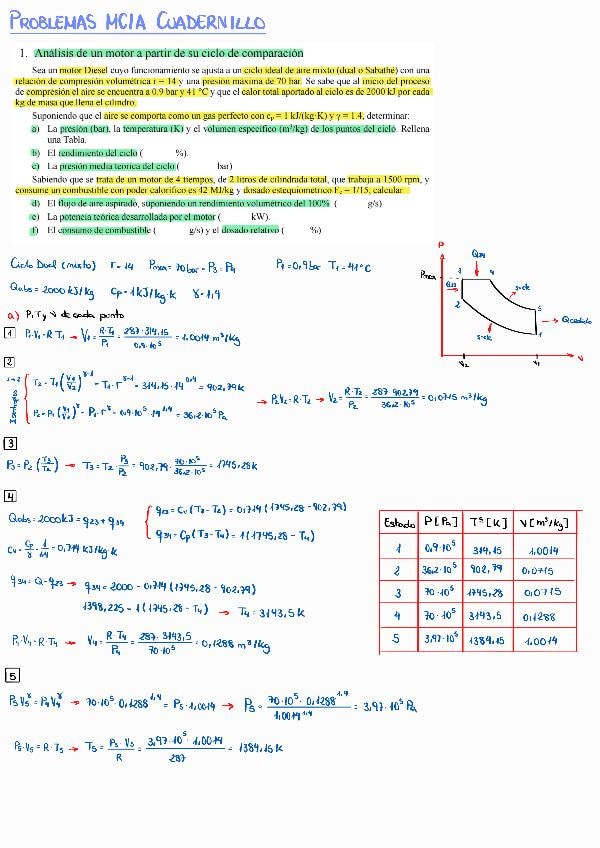 PROBLEMAS MCIA CUADERNILLO
1. Análisis de un motor a partir de su ciclo de comparación
Sea un motor Diesel cuyo funcionamiento se ajusta a un ciclo ideal de aire mixto (dual o Sabathé) con una
relación de compresión volumétrica r = 14 y una presión máxima de 70 bar. Se sabe que al inicio del proceso
de compresión el aire se encuentra a 0.9 bar y 41 °C y que el calor total aportado al ciclo es de 2000 kJ por cada
kg de masa que llena el cilindro.
Suponiendo que el aire se comporta como un gas perfecto con cp = 1 kJ/(kg·K) y γ = 1.4, determinar:
a) La presión (bar), la temperatura (K) y el volumen específico (m³/kg) de los puntos del ciclo. Rellena
una Tabla.
b) El rendimiento del ciclo ( %).
c) La presión media teórica del ciclo ( bar)
Sabiendo que se trata de un motor de 4 tiempos, de 2 litros de cilindrada total, que trabaja a 1500 rpm, y
consume un combustible con poder calorífico es 42 MJ/kg y dosado estequiométrico Fe = 1/15, calcular
d) El flujo de aire aspirado, suponiendo un rendimiento volumétrico del 100% ( g/s)
e) La potencia teórica desarrollada por el motor ( kW).
f) El consumo de combustible ( g/s) y el dosado relativo ( %)
Ciclo Dual (mixto) r = 14 Pmax = 70 bar = P3 = P4 P1 = 0,9 bar T1 = 41°C
Qabs = 2000 kJ/kg Cp = 1 kJ/kg·k γ = 1,4
a) P, T y V de cada punto
1 P1·V1 = R·T1 → V1 = R·T1/P1 = 287·314,15/0,9·10⁵ = 1,0014 m³/kg
P
Pmax
Q34
3 4
Q23
s=ctc
2
5
Qcedido
1
s=ctc
V2 V1 V
2
1→2
Isentrópico
T2 = T1 (V1/V2)^γ-1 = T1·r^γ-1 = 314,15·14^0,4 = 902,79 k
P2 = P1 (V1/V2)^γ = P1·r^γ = 0,9·10⁵·14^1,4 = 36,2·10⁵ Pa
→ P2V2 = R·T2 → V2 = R·T2/P2 = 287·902,79/36,2·10⁵ = 0,0715 m³/kg
3
P3 = P2 (T3/T2) → T3 = T2·P3/P2 = 902,79·70·10⁵/36,2·10⁵ = 1745,28 k
4
Qabs = 2000 kJ = q23 + q34
q23 = Cv (T3 - T2) = 0,714 (1745,28 - 902,79)
q34 = Cp (T3 - T4) = 1 (1745,28 - T4)
Cv = Cp/γ = 1/1,4 = 0,714 kJ/kg·k
q34 = Q - q23 → q34 = 2000 - 0,714 (1745,28 - 902,79)
1398,225 = 1 (1745,28 - T4) → T4 = 3143,5 k
P4·V4 = R·T4 → V4 = R·T4/P4 = 287·3143,5/70·10⁵ = 0,1288 m³/kg
Estado P [Pa] Tª [K] V [m³/kg]
1 0,9·10⁵ 314,15 1,0014
2 36,2·10⁵ 902,79 0,0715
3 70·10⁵ 1745,28 0,0715
4 70·10⁵ 3143,5 0,1288
5 3,97·10⁵ 1384,15 1,0014
5
P5V5^γ = P4V4^γ → 70·10⁵·0,1288^1,4 = P5·1,0014 → P5 = 70·10⁵·0,1288^1,4/1,0014^1,4 = 3,97·10⁵ Pa
P5·V5 = R·T5 → T5 = P5·V5/R = 3,97·10⁵·1,0014/287 = 1384,15 k